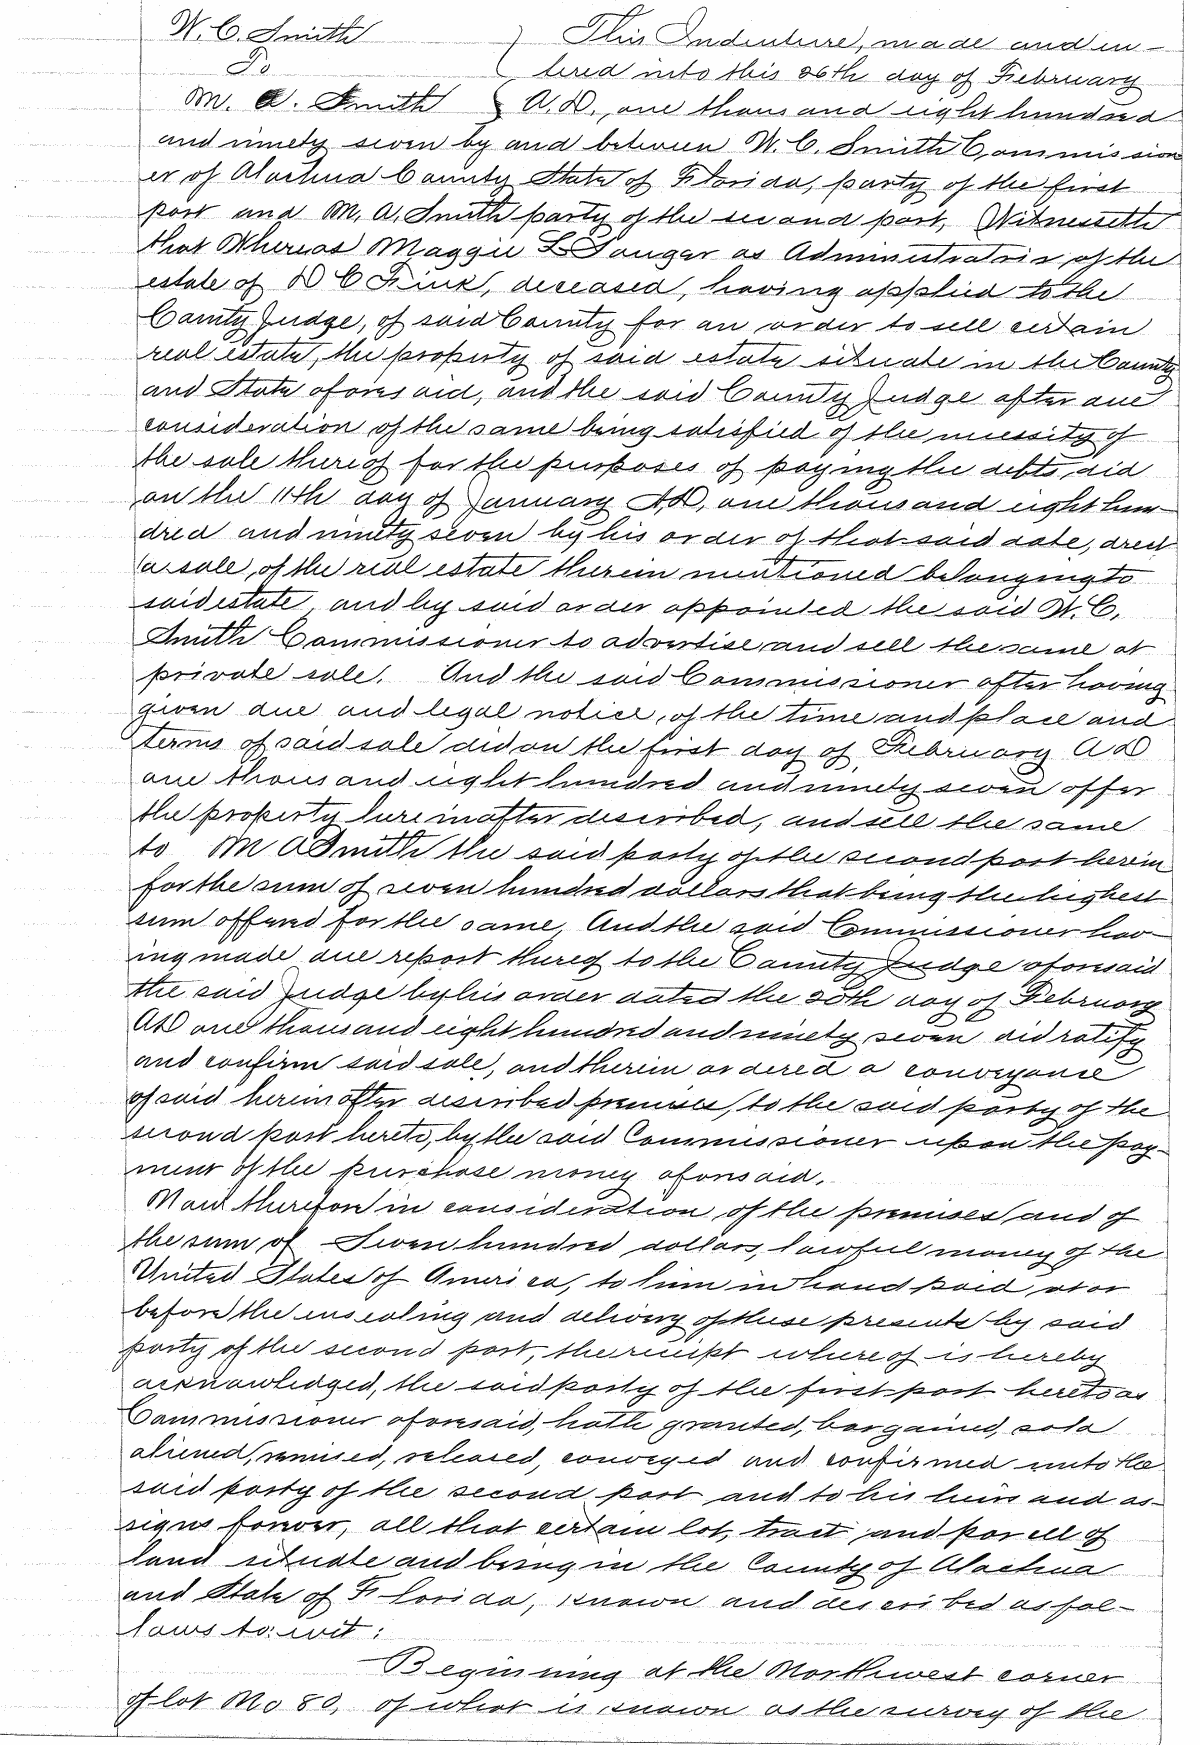 W. C. Smith
To
M. A. Smith
This Indenture, made and en-
tered into this 26th day of February
A. D., one thousand eight hundred
and ninety seven by and between W. C. Smith Commission
er of Alachua County State of Florida, party of the first
part and M. A. Smith party of the second part, Witnesseth
that Whereas Maggie L Sanger as Administratrix of the
estate of D C Fink, deceased, having applied to the
County Judge, of said County for an order to sell certain
real estate, the property of said estate situate in the County
and State aforesaid, and the said County Judge after due
consideration of the same being satisfied of the necessity of
the sale thereof for the purposes of paying the debts, did
on the 11th day of January A.D, one thousand eight hun-
dred and ninety seven by his order of that said date, direct
a sale, of the real estate therein mentioned belonging to
said estate, and by said order appointed the said W. C.
Smith Commissioner to advertise and sell the same at
private sale. And the said Commissioner after having
given due and legal notice, of the time and place and
terms of said sale did on the first day of February A D
one thousand eight hundred and ninety seven offer
the property hereinafter described, and sell the same
to M A Smith the said party of the second part herein
for the sum of seven hundred dollars that being the highest
sum offered for the same, And the said Commissioner hav-
ing made due report thereof to the County Judge aforesaid
the said Judge by his order dated the 20th day of February
AD one thousand eight hundred and ninety seven did ratify
and confirm said sale, and therein ordered a conveyance
of said hereinafter described premises, to the said party of the
second part hereto, by the said Commissioner upon the pay-
ment of the purchase money aforesaid.
Now therefore in consideration of the premises and of
the sum of Seven hundred dollars, lawful money of the
United States of America, to him in hand paid at or
before the ensealing and delivery of these presents by said
party of the second part, the receipt whereof is hereby
acknowledged, the said party of the first part hereto as
Commissioner aforesaid, hath granted, bargained, sold
aliened, remised, released, conveyed and confirmed unto the
said party of the second part and to his heirs and as-
signs forever, all that certain lot, tract and parcell of
land situate and being in the County of Alachua
and State of Florida, known and described as fol-
lows to: wit:
Beginning at the Northwest corner
of lot No 80, of what is known as the survey of the